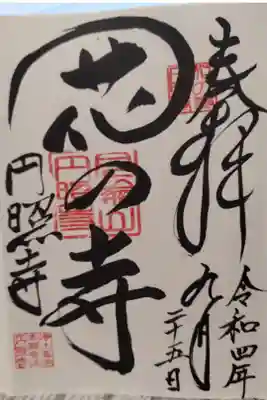 奉拝
令和四年
九月
二十五日
花の寺
円照寺